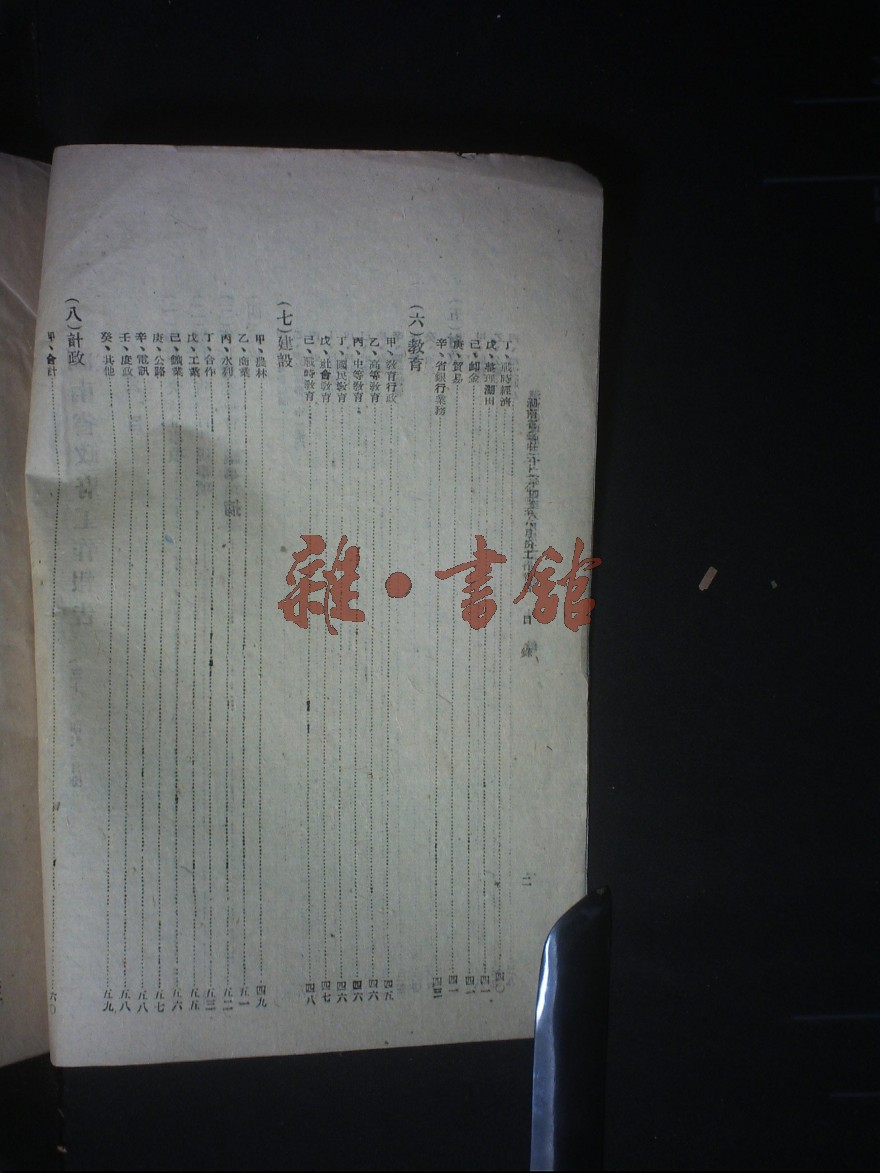 目錄
二
丁、戰時經濟 四〇
戊、整理湖田 四一
己、卹金 四一
庚、貿易 四一
辛、省銀行業務
(六)教育
甲、教育行政 四五
乙、高等教育 四六
丙、中等教育 四六
丁、國民教育 四六
戊、社會教育 四七
己、戰時教育 四八
(七)建設
甲、農林 四九
乙、商業 五一
丙、水利 五二
丁、合作 五三
戊、工業 五五
己、礦業 五六
庚、公路 五七
辛、電訊 五八
壬、度政 五八
癸、其他 五九
(八)計政
甲、會計 六〇
雜·書館